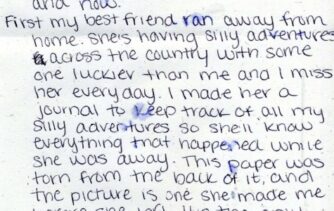 and now.
First my best friend ran away from
home. She's having silly adventures
across the country with some
one luckier than me and I miss
her everyday. I made her a
journal to keep track of all my
silly adventures so she'll know
everything that happened while
she was away. This paper was
torn from the back of it, and
the picture is one she made me